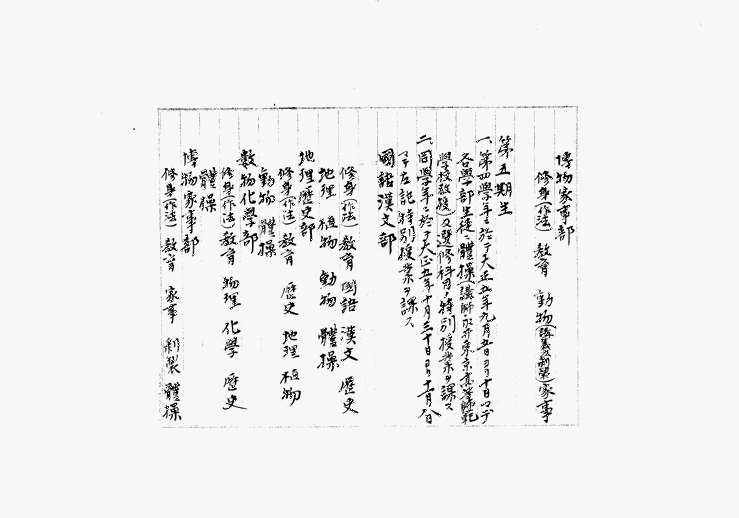 博物家事部
修身(作法) 教育 動物(講義及剥製)家事
第五期生
一、第四學年ニ於テ大正五年九月五日ヨリ十日マデ
各學部生徒ニ體操(講師永井東京高等師範
學校教授)及選修科目ノ特別授業ヲ課ス
二、同學年ニ於テ大正五年十月三十日ヨリ十一月八日
マデ左記特別授業ヲ課ス
國語漢文部
修身(作法) 教育 國語 漢文 歴史
地理 植物 動物 體操
地理歴史部
修身(作法) 教育 歴史 地理 植物
動物 體操
數物化學部
修身(作法) 教育 物理 化學 歴史
體操
博物家事部
修身(作法) 教育 家事 剥製 體操